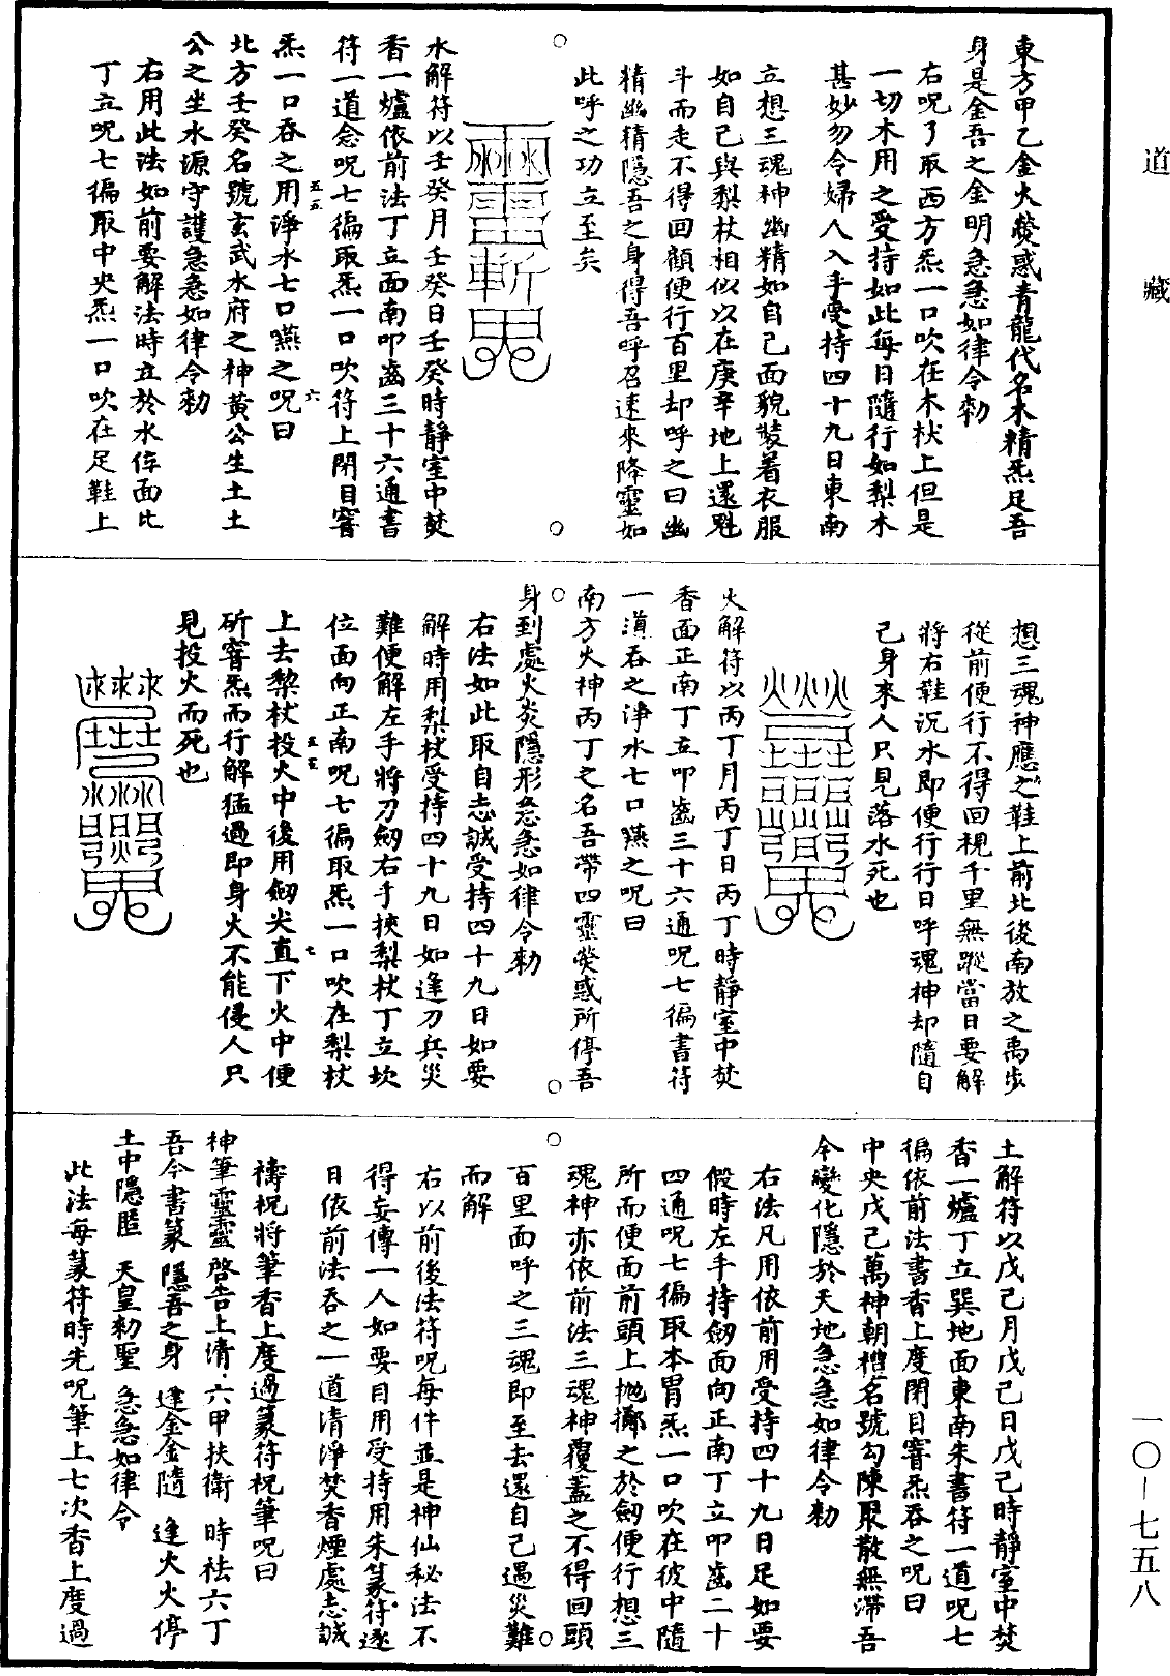 道藏
東方甲乙金火熒惑青龍代名木精炁足吾
身是金吾之金明急急如律令勑
右呪了取西方炁一口吹在木杖上但是
一切木用之受持如此每日隨行如梨木
甚妙勿令婦人入手受持四十九日東南
立想三魂神幽精如自己面貌裝着衣服
如自己與梨杖相似以在庚辛地上還魁
斗而走不得回顧便行百里却呼之曰幽
精幽精隱吾之身得吾呼召速來降靈如
此呼之功立至矣
水解符以壬癸月壬癸日壬癸時靜室中焚
香一爐依前法丁立面南叩齒三十六通書
符一道念呪七徧取炁一口吹符上閉目窨
炁一口吞之用淨水七口嚥之呪曰
北方壬癸名號玄武水府之神黃公生土土
公之坐水源守護急急如律令勑
右用此法如前要解法時立於水侟面北
丁立呪七徧取中央炁一口吹在足鞋上
想三魂神應之鞋上前北後南放之禹步
從前便行不得回視千里無蹤當日要解
將右鞋沉水即便行行日呼魂神却隨自
己身來人只見落水死也
火解符以丙丁月丙丁日丙丁時靜室中焚
香面正南丁立叩齒三十六通呪七徧書符
一道吞之淨水七口嚥之呪曰
南方火神丙丁之名吾帶四靈熒惑所停吾
身到處火炎隱形急急如律令勑
右法如此取自志誠受持四十九日如要
解時用梨杖受持四十九日如逢刀兵災
難便解左手將刀劒右手挾梨杖丁立坎
位面向正南呪七徧取炁一口吹在梨杖
上去梨杖投火中後用劒尖直下火中便
斫窨炁而行解猛過即身火不能侵人只
見投火而死也
土解符以戊己月戊己日戊己時靜室中焚
香一爐丁立巽地面東南朱書符一道呪七
徧依前法書香上度閉目窨炁吞之呪曰
中央戊己萬神朝禮名號勾陳聚散無滯吾
今變化隱於天地急急如律令勑
右法凡用依前用受持四十九日足如要
假時左手持劒面向正南丁立叩齒二十
四通呪七徧取本胃炁一口吹在彼中隨
所而便面前頭上拋擲之於劒便行想三
魂神亦依前法三魂神覆蓋之不得回頭
百里面呼之三魂即至去還自己遇災難
而解
右以前後法符呪每件並是神仙秘法不
得妄傳一人如要目用受持用朱篆符逐
日依前法吞之一道清淨焚香煙處志誠
禱祝將筆香上度過篆符祝筆呪曰
神筆靈靈 啓告上清 六甲扶衛 時祛六丁
吾今書篆 隱吾之身 逢金金隨 逢火火停
土中隱匿 天皇勑聖 急急如律令
此法每篆符時先呪筆上七次香上度過
一〇—七五八